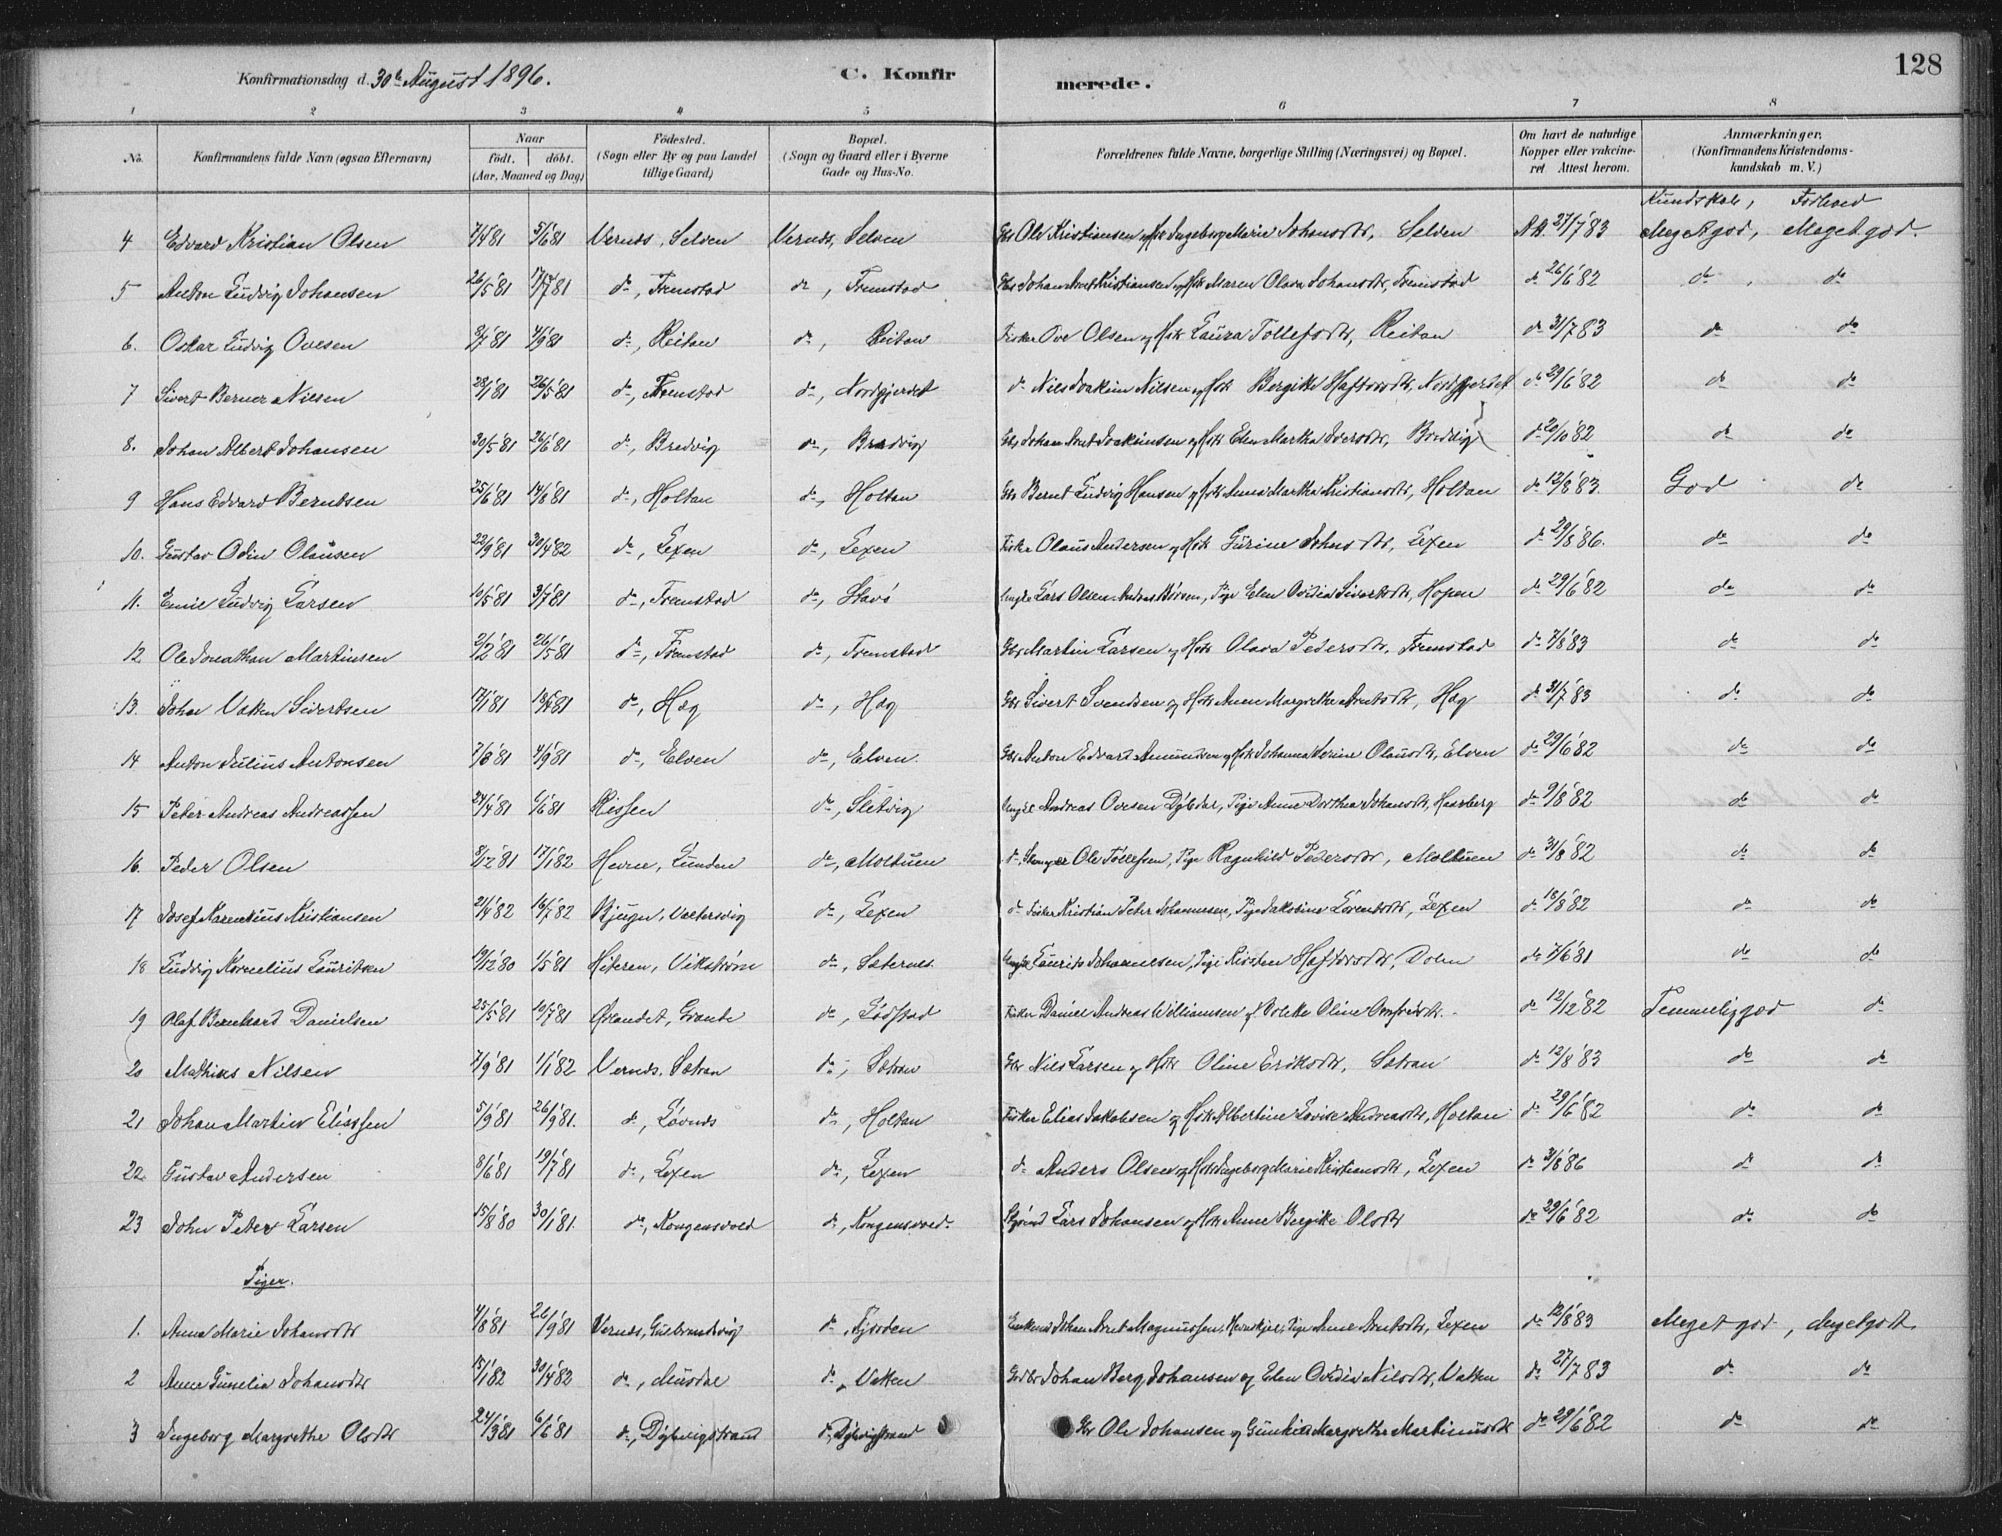 128
Konfirmationsdag d. 30te August 1896. C. Konfir merede.
1 2 3 4 5 6 7 8
No. Konfirmandens fulde Navn (ogsaa Efternavn) Naar födt. döbt. (Aar, Maaned og Dag) Födested. (Sogn eller By og paa Landet tillige Gaard) Bopæl. (Sogn og Gaard eller i Byerne Gade og Hus-No. Forældrenes fulde Navne, borgerlige Stilling (Næringsvei) og Bopæl. Om havt de naturlige Kopper eller vakcineret Attest herom. Anmærkninger. (Konfirmandens Kristendomskundskab m. V.)
Kundskab, Forhold
4 Edvard Kristian Olsen 7/4'81 5/6'81 Vernds, Selven Vernds, Selven Gbr Ole Kristiansen og Hstr Ingeborg Marie Johansdtr, Selven 27/7'83 Meget god, Meget god.
5 Anton Ludvig Johansen 26/5'81 17/7'81 do, Fremstad do, Fremstad Gbr Johan Kristiansen og Hstr Maren Olava Johansdtr, Fremstad do 26/6'82 do do
6. Oskar Ludvig Ovesen 4/9'81 do, Reitan do, Reitan Fisker Ove Olsen og Hstr Laura Tollefsdtr, Reitan do 31/7'83 do do
7 Sivert Berner Nilsen 28/1'81 26/5'81 do, Fremstad do, Nordgjerdet do Nils Joakim Nilsen og Hstr Bergitte Haftorsdtr, Nordgjerdet do 29/6'82 do do
8. Johan Albert Johansen 30/5'81 26/6'81 do, Bredvig do, Bredvig Gbr Johan Arnt Joakimsen og Hstr Elen Martha Iversdtr, Bredvig do 20/10'82 do do
9 Hans Edvard Berntsen 25/6'81 14/8'81 do, Holtan do, Holtan Gbr Bernt Ludvig Hansen og Hstr Anna Martha Kristiansdtr, Holtan do 12/8'83. God do
10. Gustav Odin Olausen 22/9'81 30/4'82 do, Lexen do, Lexen Fisker Olaus Andersen og Hstr Gurine Johnsdtr, Lexen do 29/8'86. do do
11. Emil Ludvig Larsen 10/5'81 3/7'81 do, Fremstad do, Stavö Ungkl Lars Olsen, Pige Elen Ovidia Sivertsdtr, Hopen do 29/6'82 do do
12 Ole Jonathan Martinsen 2/2'81 26/5'81 do, Fremstad do, Fremstad Gbr Martin Larsen og Hstr Olava Pedersdtr, Fremstad do 7/8'83 do do
13. Johan Vatten Sivertsen 17/1'81 do, Hæg do, Hæg Gbr Sivert Svendsen og Hstr Anne Margrethe Arntsdtr, Hæg do 31/7'83 do do
14 Anton Julius Antonsen 4/9'81 do, Elven do, Elven. Gbr Anton Edvard Amundsen og Hstr Johanna Olausdtr, Elven do 29/6'82 do do
15 Peter Andreas Andreassen 24/4'81 6/6'81 Rissen do, Sletvig Ungkl Andreas Ovesen Dybdal, Pige Anne Dorthea Johansdtr, Haarberg do 9/8'82 do do
16. Peder Olsen 8/12'81 17/1'82 Hevne, Lunden do, Moltuen do, Ole Tollefsen, Pige Ragnhild Pedersdtr, Moltuen do 31/8'82 do do
17 Josef Kristiansen 21/4'82 16/7'82 Bjugn, Valtersvig do, Lexen do Fisker Kristian Peter Johannesen, Pige Jakobine Lorentsdtr, Lexen do 18/8'82 do do
18 Ludvig Kornelius Lauritsen 19/12'80 1/5'81 Hiteren, Vikström do, Sæternes Ungkl Laurits Johannesen, Pige Kirsten Haftorsdtr, Dolm do 7/6'81 do do
19 Olaf Bernhard Danielsen 25/5'81 10/7'81 Ørlandet, Grande do, Lödstad Fisker Daniel Andreas Williamsen og Volette Oline do 12/12'82 Temmelig god do
20 Mathias Nilsen 7/9'81 1/1'82 Vernds, Sætran do, Sætran Gbr Nils Larsen og Hstr Oline Eriksdtr, Sætran do 12/8'83 do do
21 Johan Martin Eliassen 5/9'81 26/9'81. do, Lövnds do, Holtan Fisker Elias Jakobsen og Hstr Albertine Lovise Andreasdtr, Holtan do 29/6'82 do do
22. Gustav Andersen 8/6'81 19/7'81 do, Lexen do, Lexen do Anders Olsen og Hstr Ingeborg Marie Kristiansdtr, Lexen do 31/8'86 do do
23 John Peter Larsen 15/8'80 30/1'81. do, Kongensvold do, Kongensvold. Lars Johansen og Hstr Anne Bergitte Olsdtr do 29/6'82 do do
Piger.
1. Anna Marie Johansdtr 4/8'81 26/9'81 Vernds, Gulbrandsvig do, Fjorden Enkemd Johan Arnt Magnussen, Pige Anne Arntsdtr, Lexen do 12/8'83 Meget god, Meget godt.
2 Anne Gunelia Johansdtr 15/1'82 30/4'82 do, Musdal do, Vatten Johan Berg Johansen og Elen Ovidia Nilsdtr, Vatten do 27/7'83 do do
3 Ingeborg Margrethe Olsdtr 24/3'81 6/6'81 do, Dybvigstrand do, Dybvigstrand Gbr Ole Johansen og Gunhild Margrethe Martinusdtr do 29/6'82 do do